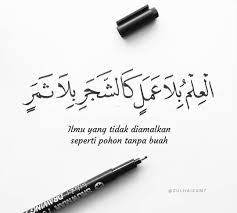 الْعِلْمُ بِلَا عَمَلٍ كَالشَّجَرِ بِلَا ثَمَرٍ
Ilmu yang tidak diamalkan
seperti pohon tanpa buah